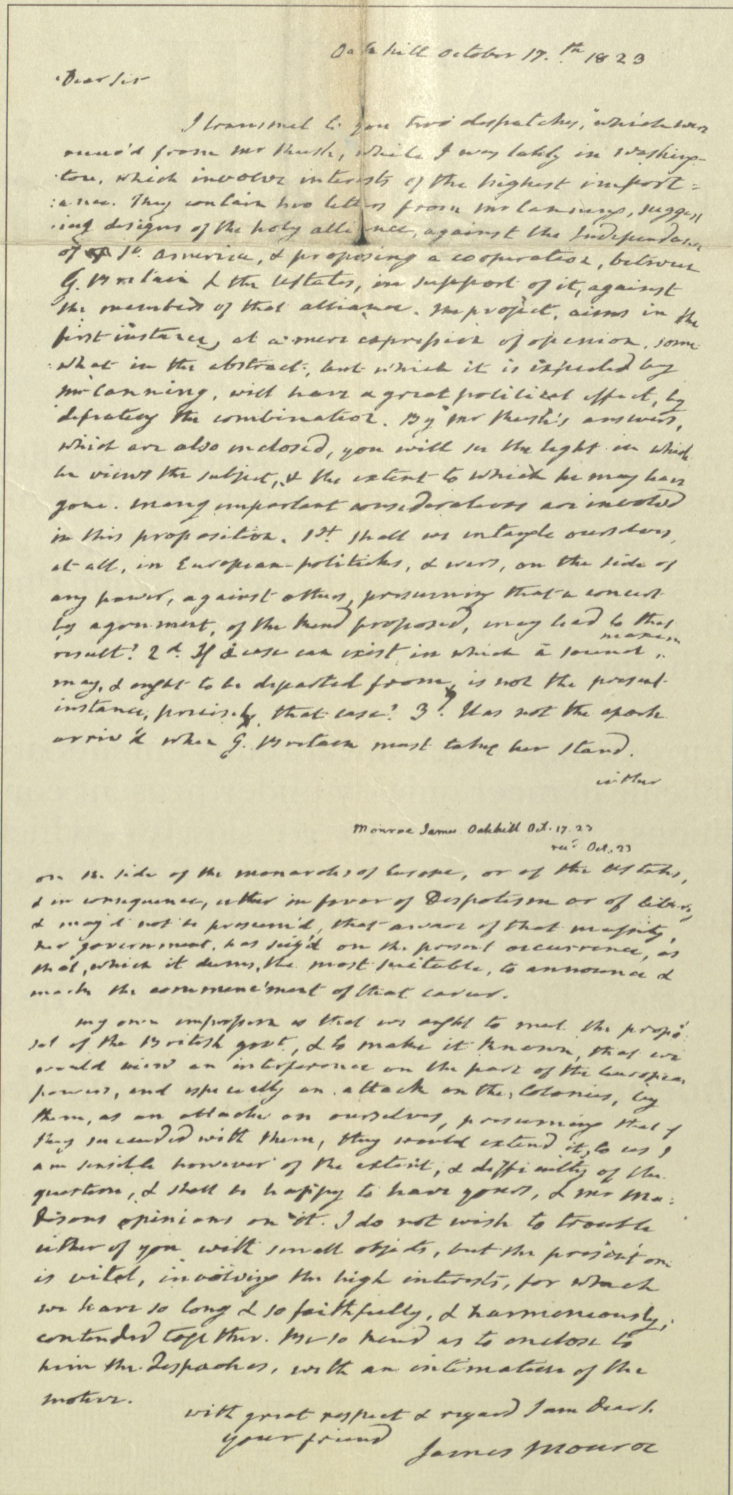 Oakhill October 17.th 1823
Dear Sir
I transmit to you two despatches, which were
receiv'd from Mr Rush, while I was lately in Washing-
ton, which involve interests of the highest import=
ance. They contain two letters from Mr Canning, suggest
ing designs of the holy alliance, against the Independence
of So. America, & proposing a cooperation, between
G. Britain & the UStates, in support of it, against
the members of that alliance. The project, aims in the
first instance, at a mere expression of opinion, some
what in the abstract, but which it is expected by
Mr Canning, will have a great political effect, by
defeating the combination. By Mr Rush's answers,
which are also enclosed, you will see the light in which
he views the subject, & the extent to which he may have
gone. Many important considerations are involved
in this proposition. 1st Shall we entangle ourselves,
at all, in European politicks, & wars, on the side of
any power, against others, presuming that a concert
by agreement, of the kind proposed, may lead to that
result? 2d. If a case can exist, in which a sound maxim
may, & ought to be departed from, is not the present
instance, precisely that case? 3d. Has not the epoch
arriv'd when G. Britain must take her stand,
either
Monroe James Oakhill Oct. 17. 23
recd Oct. 23
on the side of the monarchs of Europe, or of the UStates,
& in consequence, either in favor of Despotism or of liberty
& may it not be presum'd, that aware of that necessity,
her government, has seiz'd on the present occurrence, as
that, which it deems, the most suitable, to announce &
mark the commenc'ment of that career.
My own impression is that we ought to meet the propo
sal of the British govt, & to make it known, that we
would view an interference on the part of the European
powers, and especially an attack on the Colonies, by
them, as an attack on ourselves, presuming that if
they succeeded with them, they would extend it to us. I
am sensible however of the extent, & difficulty of the
question, & shall be happy to have yours, & Mr Ma=
disons opinions on it. I do not wish to trouble
either of you with small objects, but the present one
is vital, involving the high interests, for which
we have so long & so faithfully, & harmoniously,
contended together. Be so kind as to enclose to
him the despaches, with an intimation of the
motive.
with great respect & regard I am Dear
your friend
James Monroe